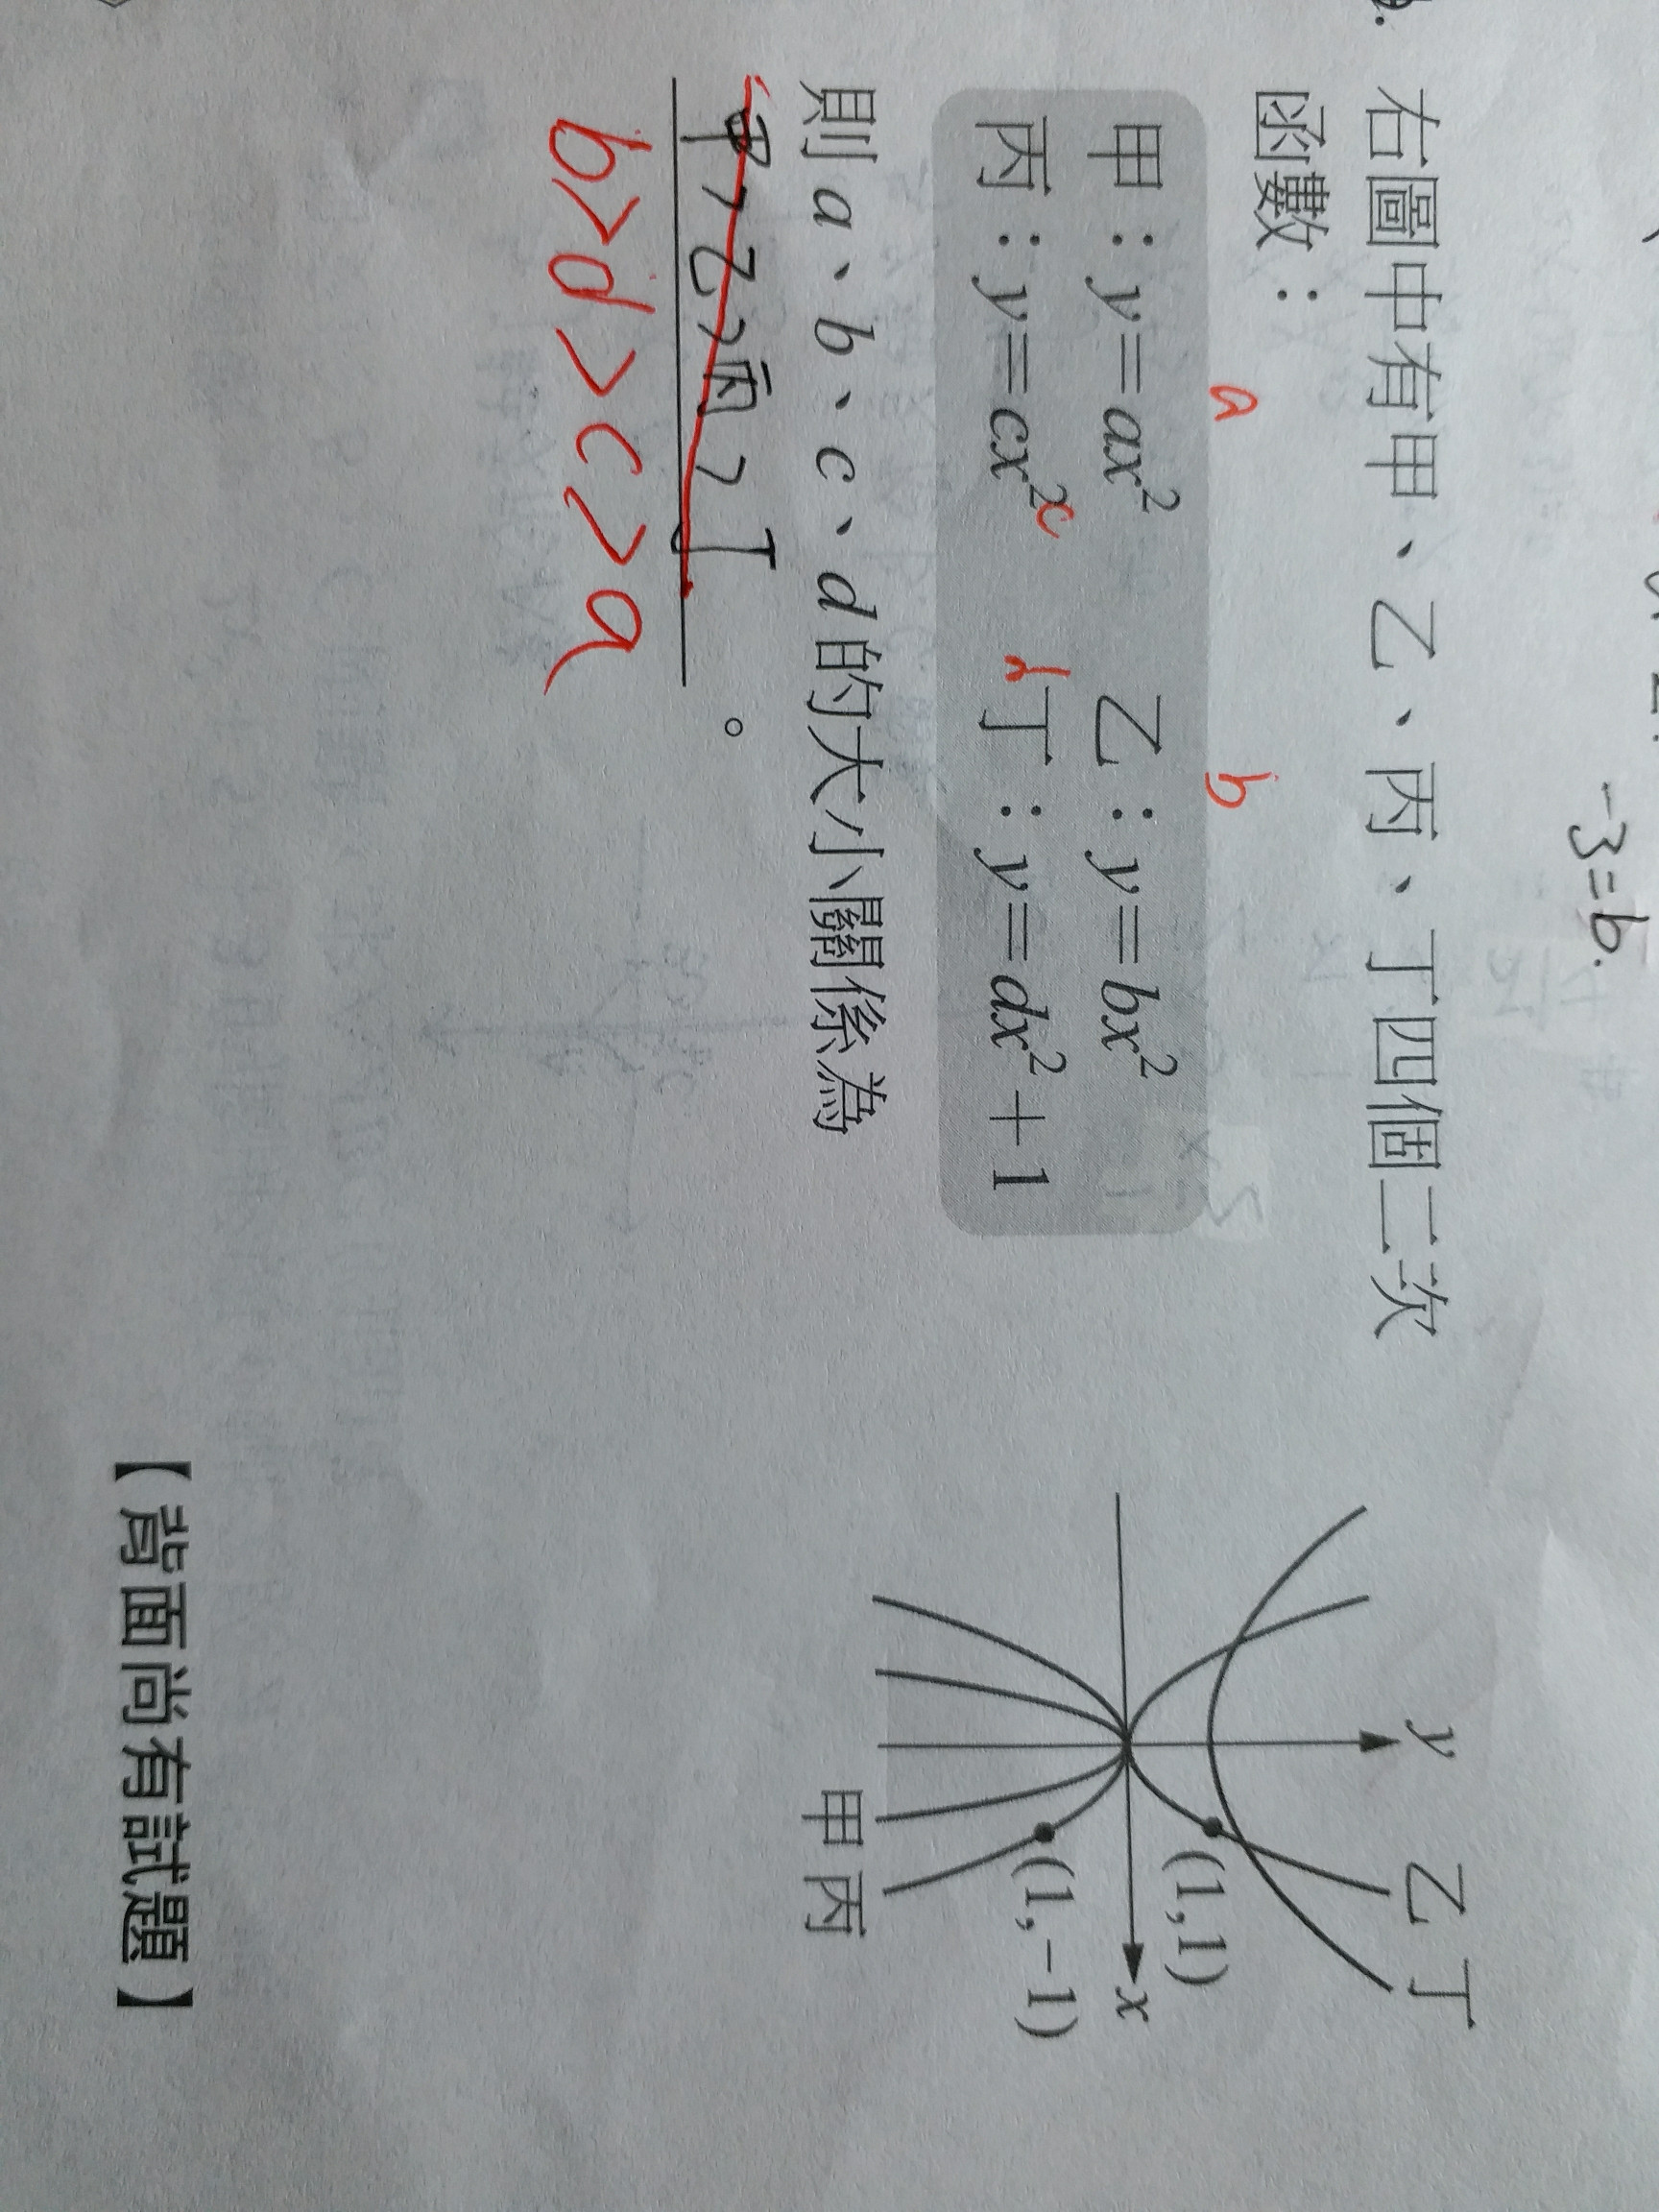 -3=b.
右圖中有甲、乙、丙、丁四個二次
函數：
a
b
甲：y=ax²
乙：y=bx²
丙：y=cx²
c
丁：y=dx²+1
則 a、b、c、d 的大小關係為
甲>乙>丙>丁 。
b>d>c>a
y
乙 丁
(1,1)
x
(1,-1)
甲 丙
【背面尚有試題】